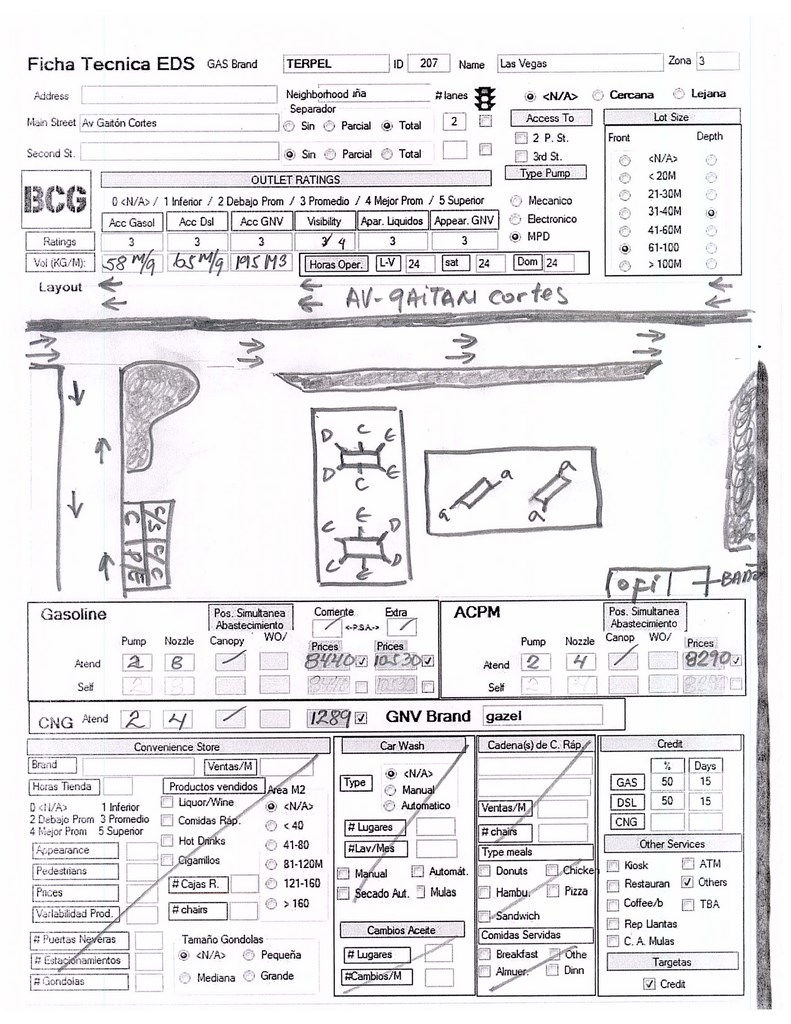 Ficha Tecnica EDS GAS Brand TERPEL ID 207 Name Las Vegas Zona 3
Address Neighborhood #lanes <N/A> Cercana Lejana
Separador
Main Street Av Gaitón Cortes Sin Parcial Total 2 Access To Lot Size
2 P. St. Front Depth
Second St. Sin Parcial Total 3rd St. <N/A>
BCG OUTLET RATINGS Type Pump < 20M
0 <N/A> / 1 Inferior / 2 Debajo Prom / 3 Promedio / 4 Mejor Prom / 5 Superior Mecanico 21-30M
Acc Gasol Acc Dsl Acc GNV Visibility Apar. Liquidos Appear. GNV Electronico 31-40M
Ratings 3 3 3 3 4 3 3 MPD 41-60M
61-100
Vol (KG/M): 58 M/g 65 M/g 195 M3 Horas Oper. L-V 24 sat 24 Dom 24 > 100M
Layout AV-gAiTAN cortes
D C E
D C E
C E D
C E D
a a
a a
C/S C/C
C P/E
ofi BAÑ
Gasoline Pos. Simultanea Abastecimiento Corriente <-P.S.A.-> Extra ACPM Pos. Simultanea Abastecimiento
Pump Nozzle Canopy WO/ Prices Prices Pump Nozzle Canop WO/ Prices
Atend 2 8 8440 10530 Atend 2 4 8290
Self 2 8 8440 10530 Self 2 4 8290
CNG Atend 2 4 1289 GNV Brand gazel
Convenience Store Car Wash Cadena(s) de C. Ráp. Credit
Brand Ventas/M <N/A> % Days
Horas Tienda Productos vendidos Area M2 Type Manual GAS 50 15
0 <N/A> 1 Inferior Liquor/Wine <N/A> Automatico Ventas/M DSL 50 15
2 Debajo Prom 3 Promedio Comidas Ráp. < 40 # Lugares # chairs CNG
4 Mejor Prom 5 Superior Hot Drinks 41-80 #Lav/Mes Type meals Other Services
Appearance Cigarrillos 81-120M Manual Automát. Donuts Chicken Kiosk ATM
Pedestrians # Cajas R. 121-160 Secado Aut. Mulas Hambu. Pizza Restauran Others
Prices # chairs > 160 Sandwich Coffee/b TBA
Variabilidad Prod. Cambios Aceite Comidas Servidas Rep Llantas
# Puertas Neveras Tamaño Gondolas # Lugares Breakfast Othe C. A. Mulas
# Estacionamientos <N/A> Pequeña #Cambios/M Almuer. Dinn Targetas
# Gondolas Mediana Grande Credit